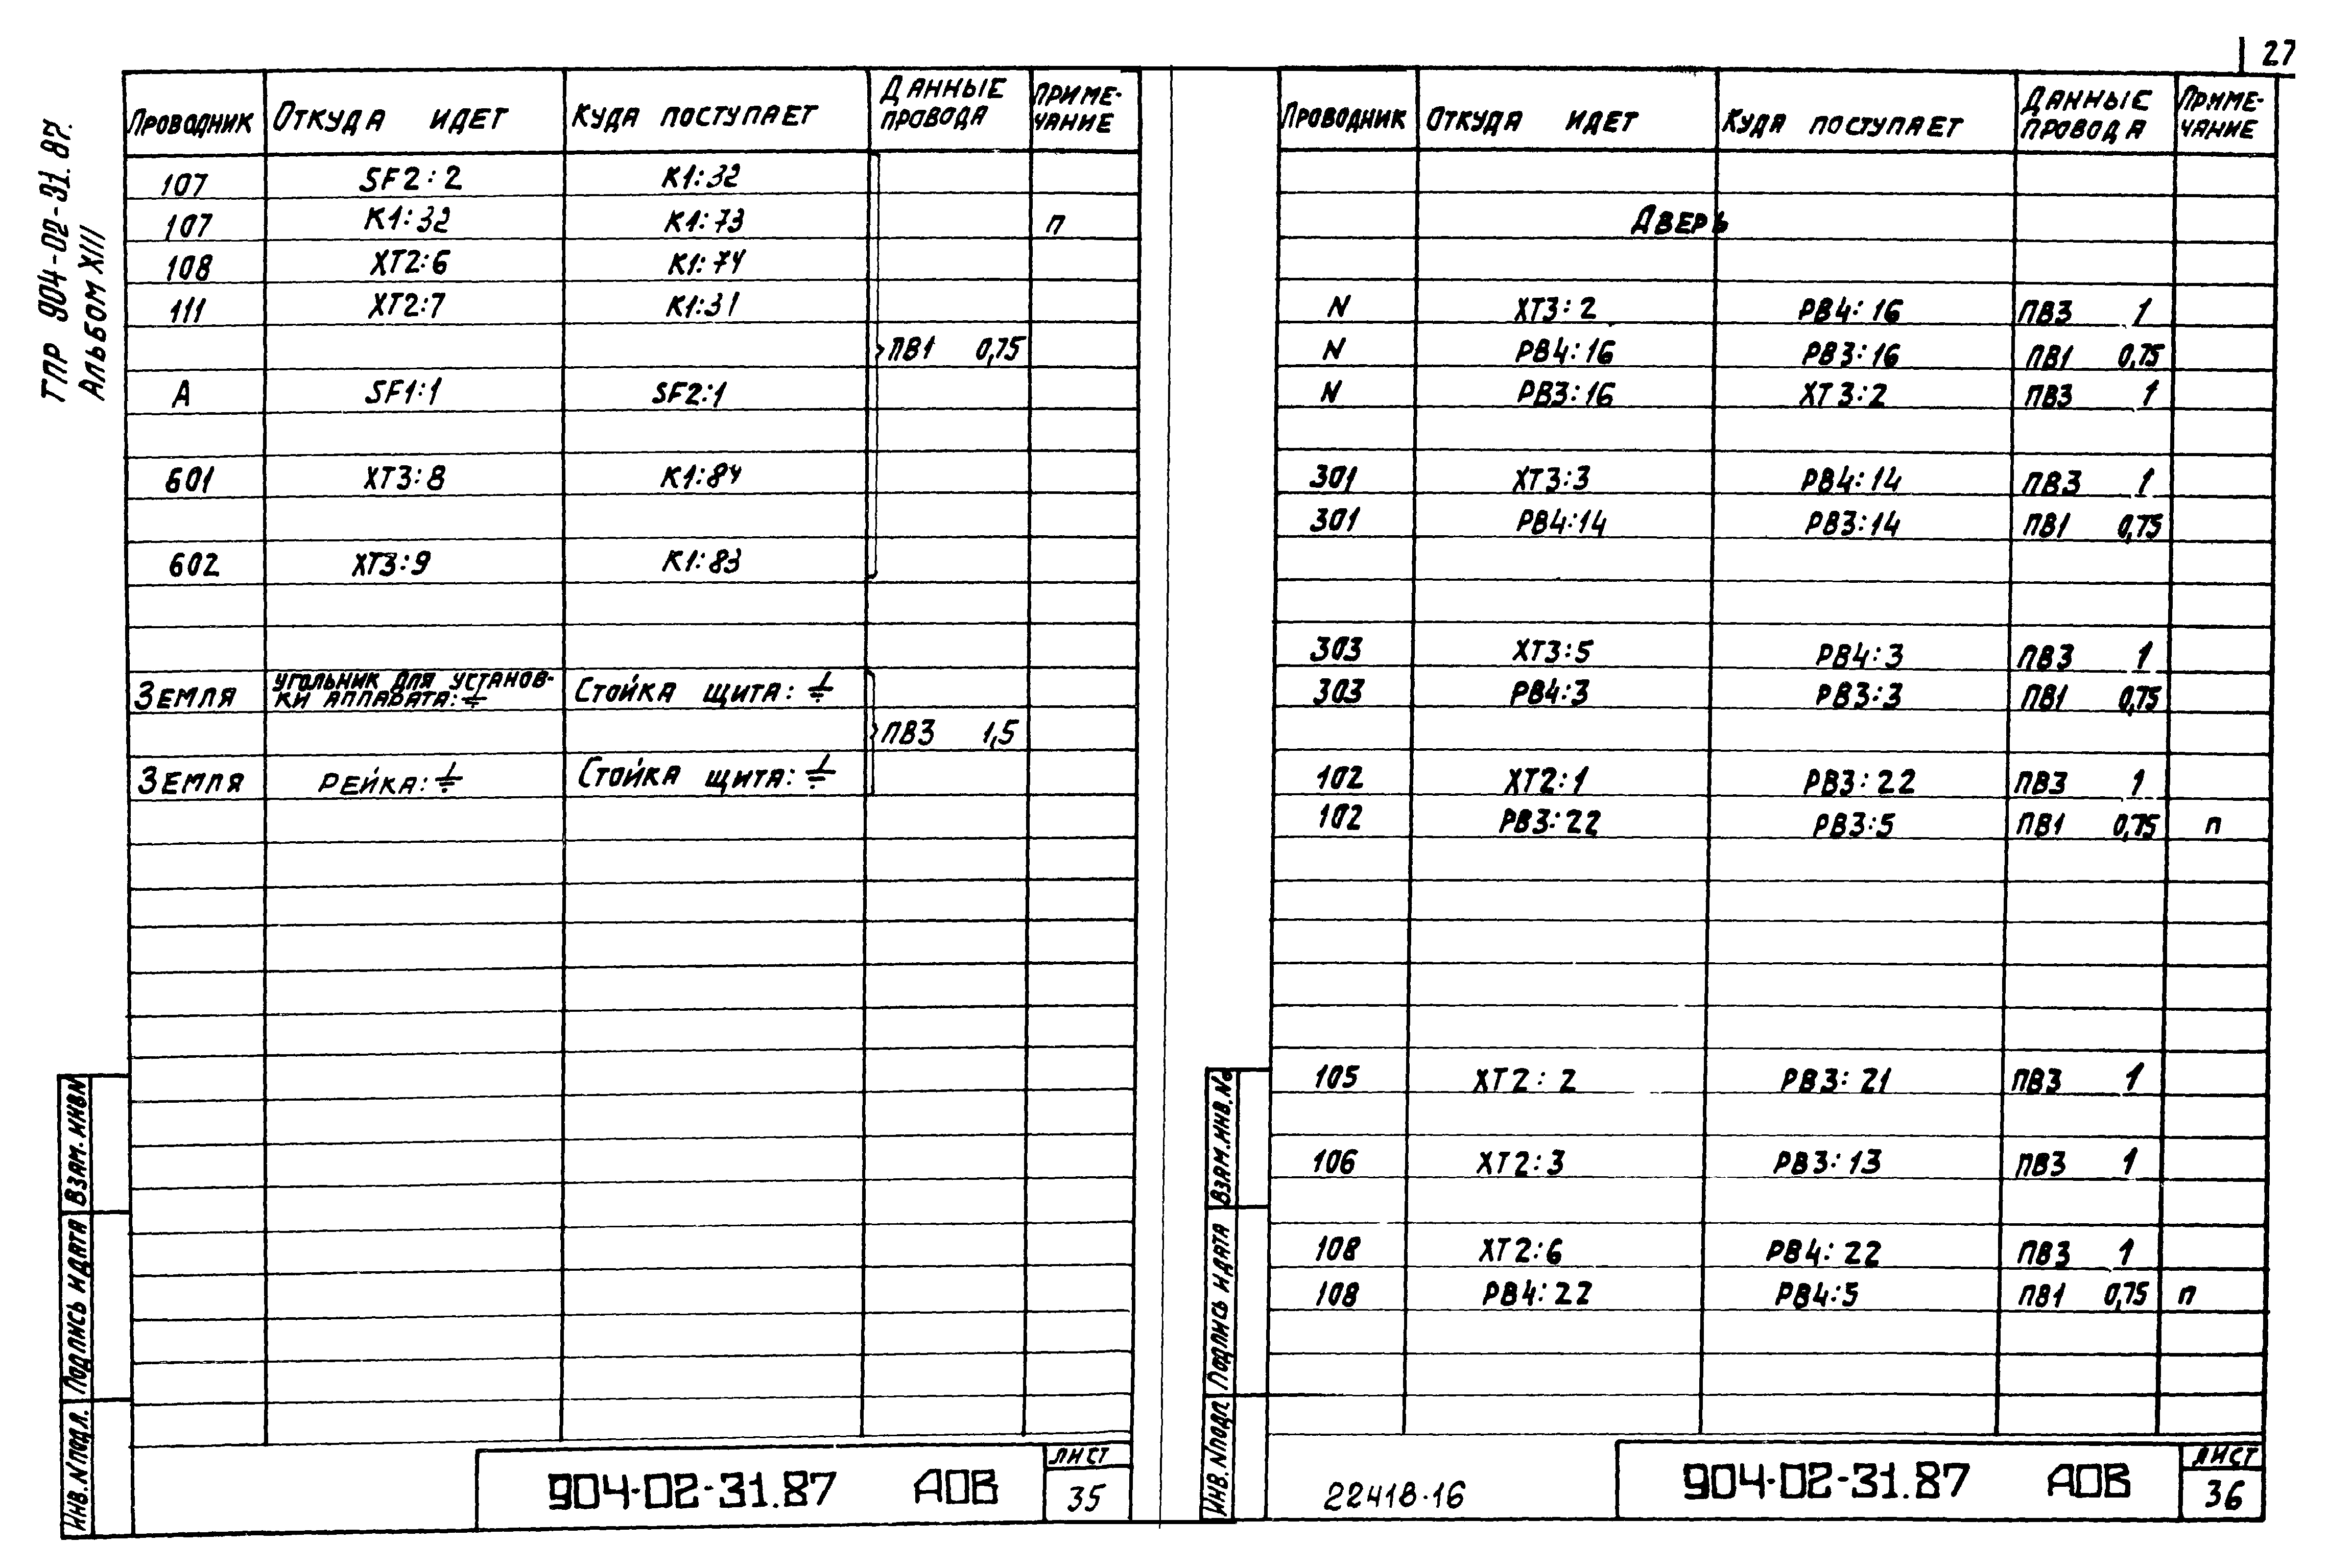 27
ТПР 904-02-31.87.
Альбом XIII
Проводник Откуда идет Куда поступает Данные провода Примечание
107 SF2:2 К1:32
107 К1:32 К1:73 п
108 ХТ2:6 К1:74
111 ХТ2:7 К1:31
ПВ1 0,75
А SF1:1 SF2:1
601 ХТ3:8 К1:84
602 ХТ3:9 К1:83
Земля угольник для установ-
ки аппарата:⏚ Стойка щита:⏚
ПВ3 1,5
Земля рейка:⏚ Стойка щита:⏚
Инв.№подл. Подпись и дата Взам.инв№
904-02-31.87 АОВ
лист
35
Проводник Откуда идет Куда поступает Данные провода Примечание
Дверь
N ХТ3:2 РВ4:16 ПВ3 1
N РВ4:16 РВ3:16 ПВ1 0,75
N РВ3:16 ХТ3:2 ПВ3 1
301 ХТ3:3 РВ4:14 ПВ3 1
301 РВ4:14 РВ3:14 ПВ1 0,75
303 ХТ3:5 РВ4:3 ПВ3 1
303 РВ4:3 РВ3:3 ПВ1 0,75
102 ХТ2:1 РВ3:22 ПВ3 1
102 РВ3:22 РВ3:5 ПВ1 0,75 п
105 ХТ2:2 РВ3:21 ПВ3 1
106 ХТ2:3 РВ3:13 ПВ3 1
108 ХТ2:6 РВ4:22 ПВ3 1
108 РВ4:22 РВ4:5 ПВ1 0,75 п
Инв.№подл. Подпись и дата Взам.инв.№
22418-16
904-02-31.87 АОВ
лист
36